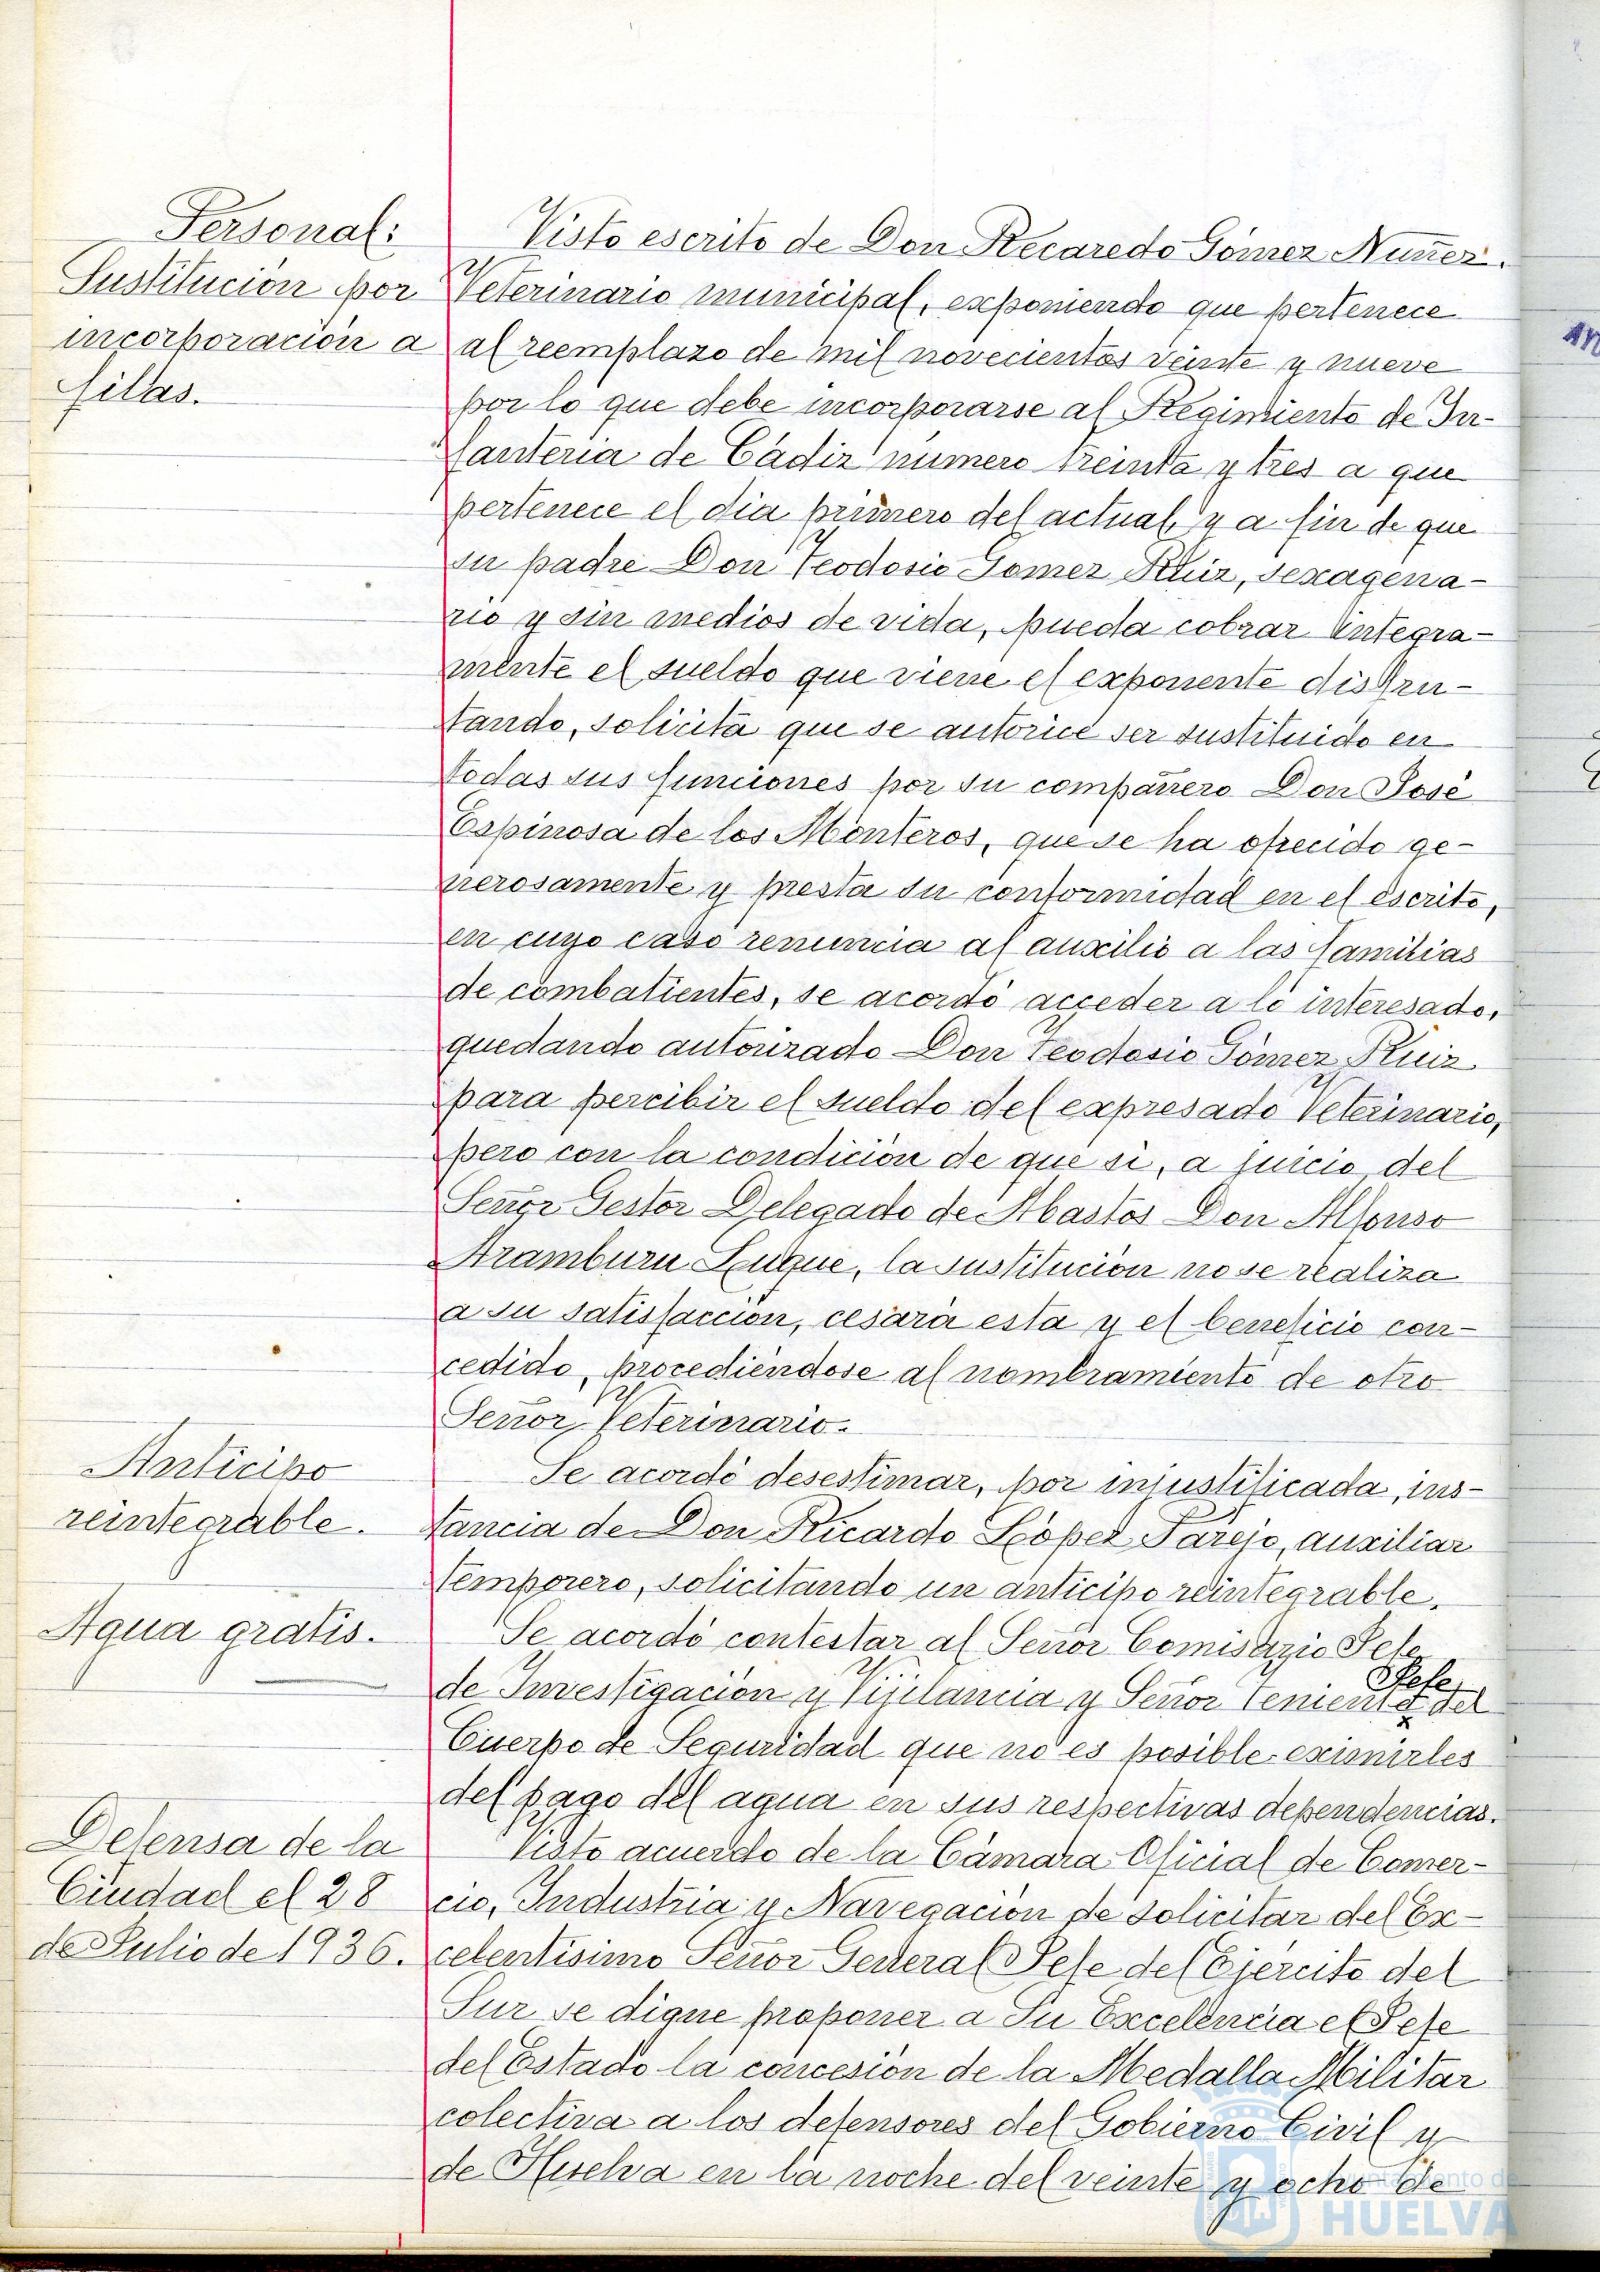 Personal:
Sustitución por
incorporación a
filas.
Visto escrito de Don Recaredo Gómez Nuñez.
Veterinario municipal, exponiendo que pertenece
al reemplazo de mil novecientos veinte y nueve
por lo que debe incorporarse al Regimiento de In-
fanteria de Cádiz número treinta y tres a que
pertenece el dia primero del actual, y a fin de que
su padre Don Teodosio Gomez Ruiz, sexagena-
rio y sin medios de vida, pueda cobrar integra-
mente el sueldo que viene el exponente disfru-
tando, solicita que se autorice ser sustituido en
todas sus funciones por su compañero Don José
Espinosa de los Monteros, que se ha ofrecido ge-
nerosamente y presta su conformidad en el escrito,
en cuyo caso renuncia al auxilio a las familias
de combatientes, se acordó acceder a lo interesado,
quedando autorizado Don Teodosio Gómez Ruiz
para percibir el sueldo del expresado Veterinario,
pero con la condición de que si, a juicio del
Señor Gestor Delegado de Abastos Don Alfonso
Aramburu Luque, la sustitución no se realiza
a su satisfacción, cesará esta y el beneficio con-
cedido, procediéndose al nombramiento de otro
Señor Veterinario.
Anticipo
reintegrable.
Se acordó desestimar, por injustificada, ins-
tancia de Don Ricardo López Parejo, auxiliar
temporero, solicitando un anticipo reintegrable.
Agua gratis.
Se acordó contestar al Señor Comisario Jefe
de Investigación y Vigilancia y Señor Teniente Jefe del
Cuerpo de Seguridad que no es posible eximirles
del pago del agua en sus respectivas dependencias.
Defensa de la
Ciudad el 28
de Julio de 1936.
Visto acuerdo de la Cámara Oficial de Comer-
cio, Industria y Navegación de solicitar del Ex-
celentisimo Señor General Jefe del Ejército del
Sur se digne proponer a Su Excelencia el Jefe
del Estado la concesión de la Medalla Militar
colectiva a los defensores del Gobierno Civil y
de Huelva en la noche del veinte y ocho de
Ayuntamiento de
HUELVA